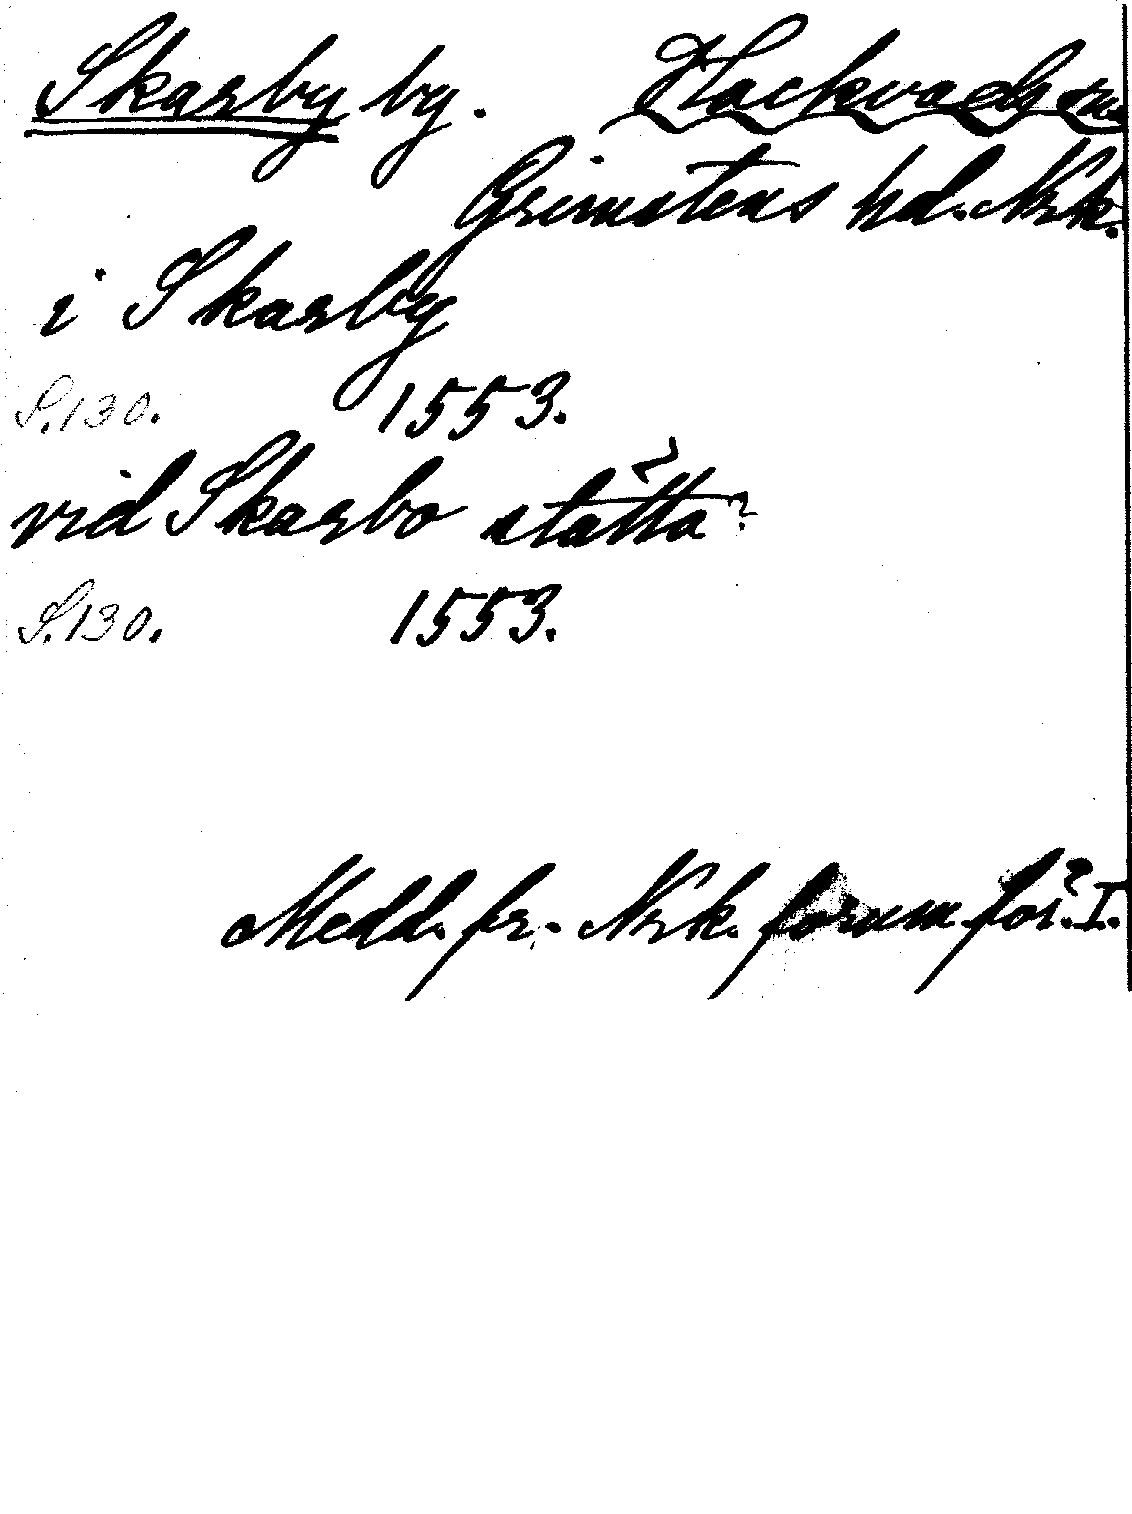 Skarby by. Hackvads sn.
Grimstens hd. Nrk.
i Skarby
S.130. 1553.
vid Skarbo stätta?
S.130. 1553.
Medd. fr. Nrk. fornm. för. I.